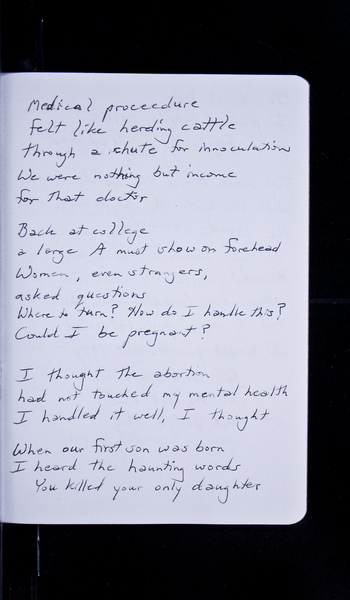 Medical proceedure
felt like herding cattle
through a chute for innoculations
We were nothing but income
for that doctor
Back at college
a large A must show on forehead
Women, even strangers,
asked questions
Where to turn? How do I handle this?
Could I be pregnant?
I thought the abortion
had not touched my mental health
I handled it well, I thought
When our first son was born
I heard the haunting words
You killed your only daughter